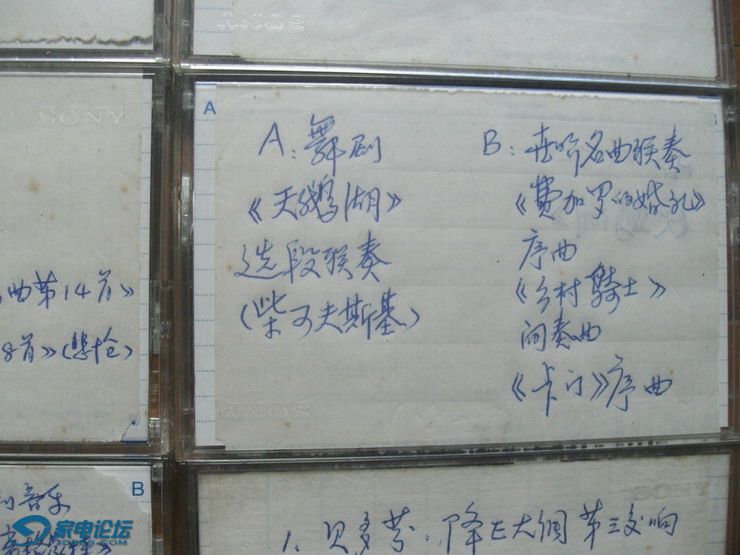 SONY
SONY
曲第14首》
8首》(悲怆)
A
A:舞剧
《天鹅湖》
选段联奏
(柴可夫斯基)
B:世界名曲联奏
《费加罗的婚礼》
序曲
《乡村骑士》
间奏曲
《卡门》序曲
SONY
音乐
B
家电论坛
JD-BBS.COM
1、贝多芬:降E大调第三交响